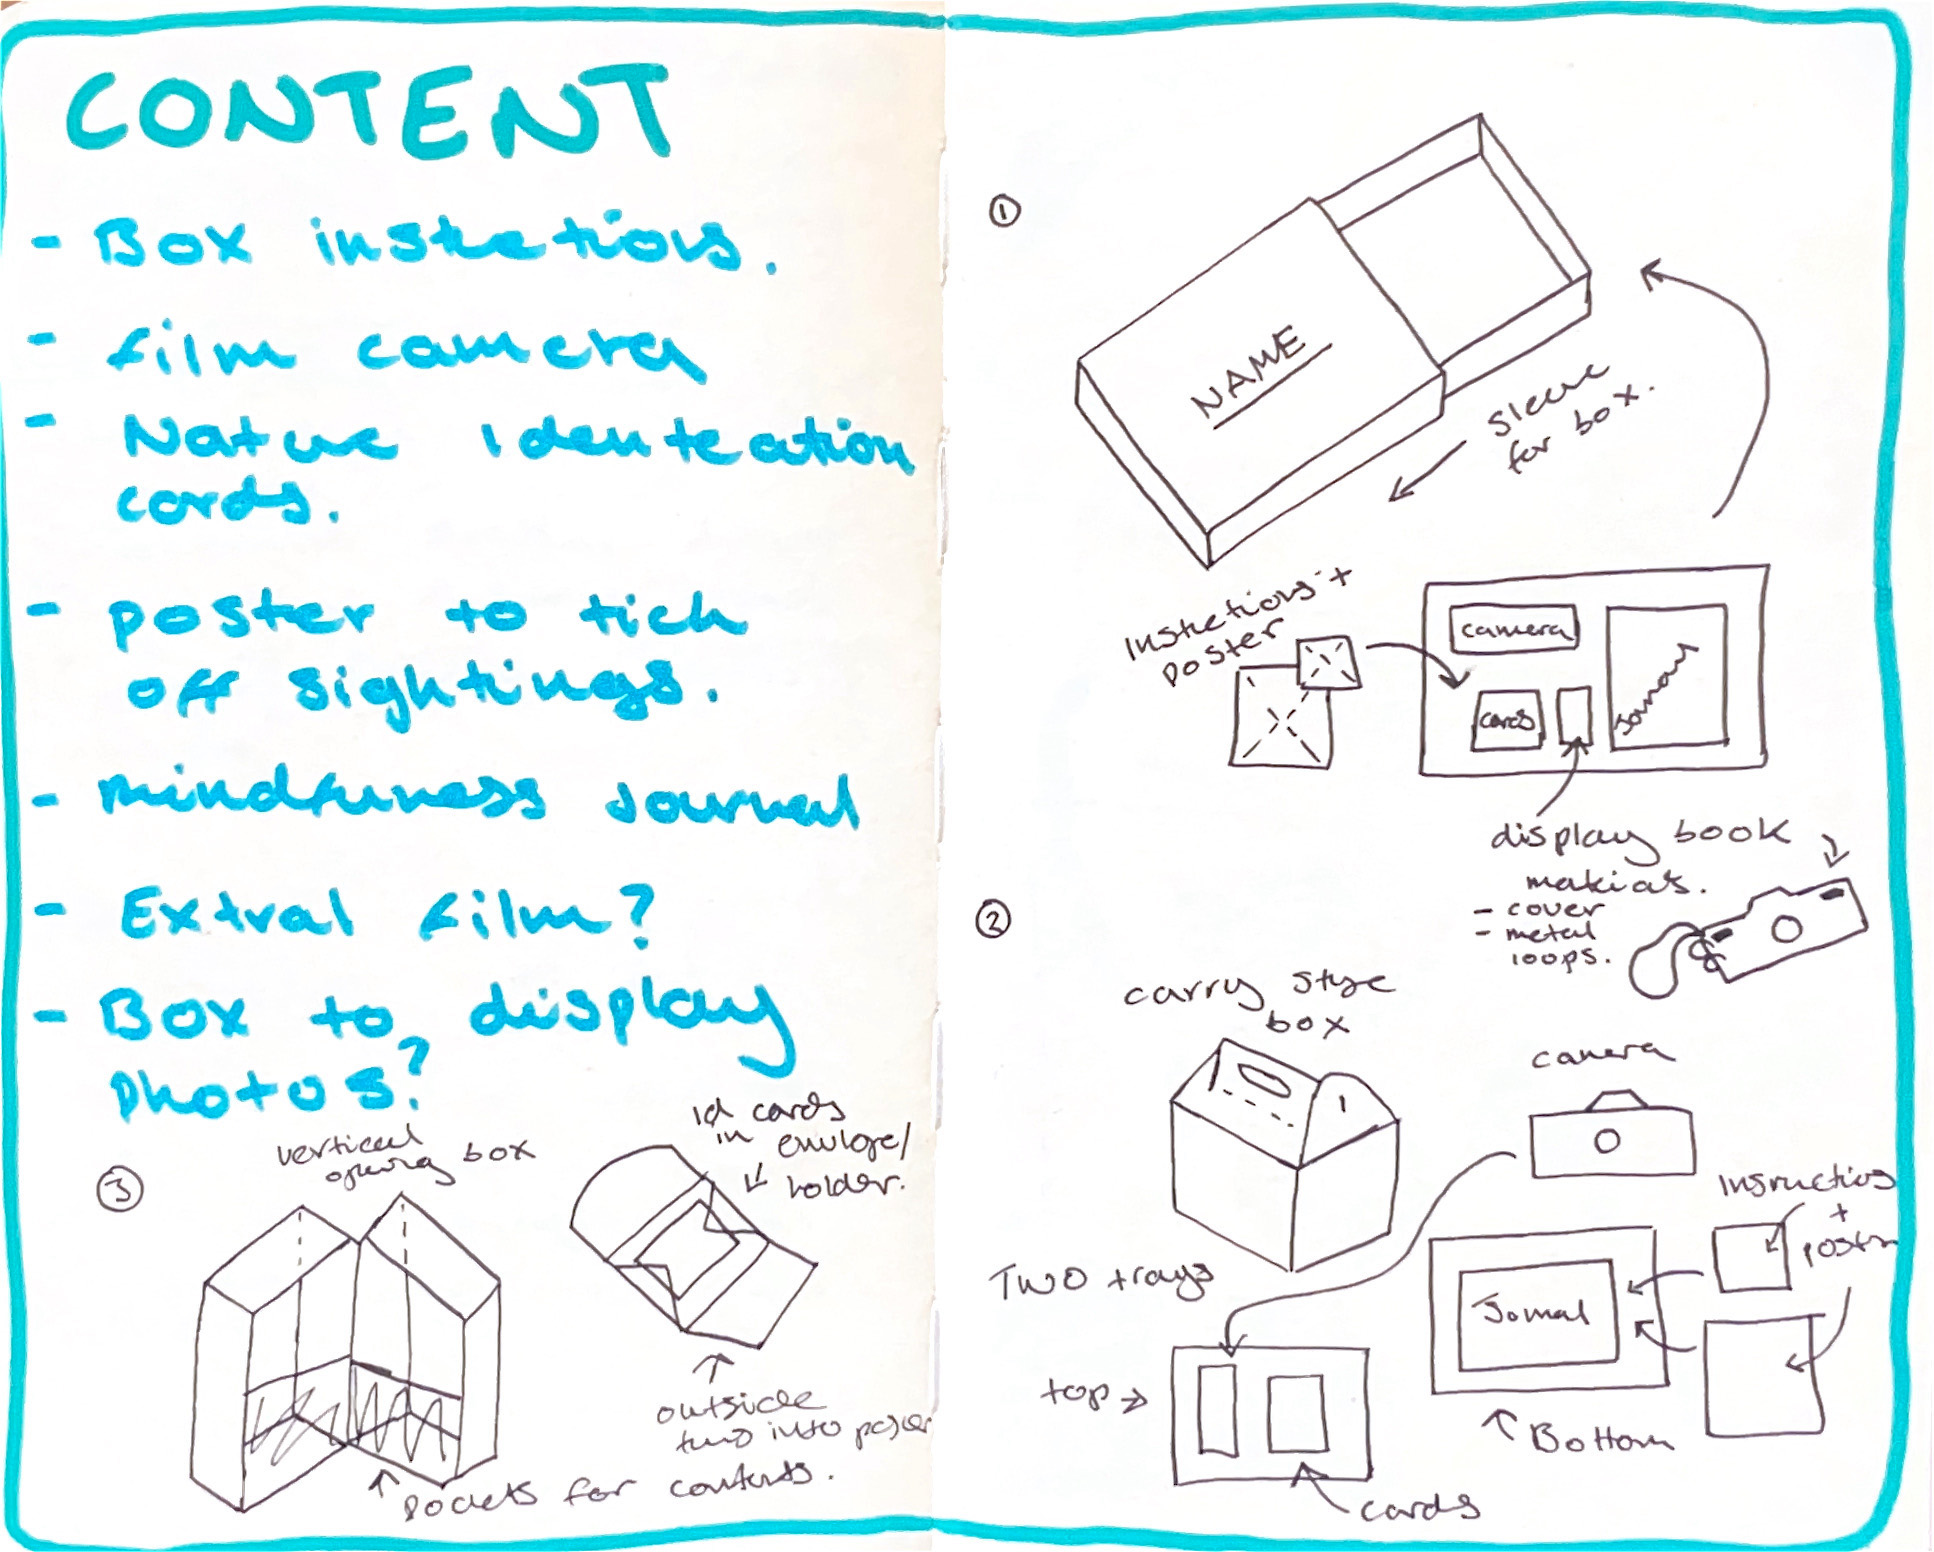 CONTENT
- Box instretions.
- film camera
- Nature identeation
cards.
- poster to tick
off sightings.
- mindfuness journal
- Extral film?
- Box to display
photos?
③
vertical
opening box
pockets for contents.
id cards
in envlope/
holder.
outside
two into poster
①
NAME
sleeve
for box.
Instretions +
poster
camera
cards
Jornal
display book
makials.
- cover
- metal
loops.
②
carry style
box
camera
Two trays
top →
cards
Jornal
Bottom
Insructions
+
poster